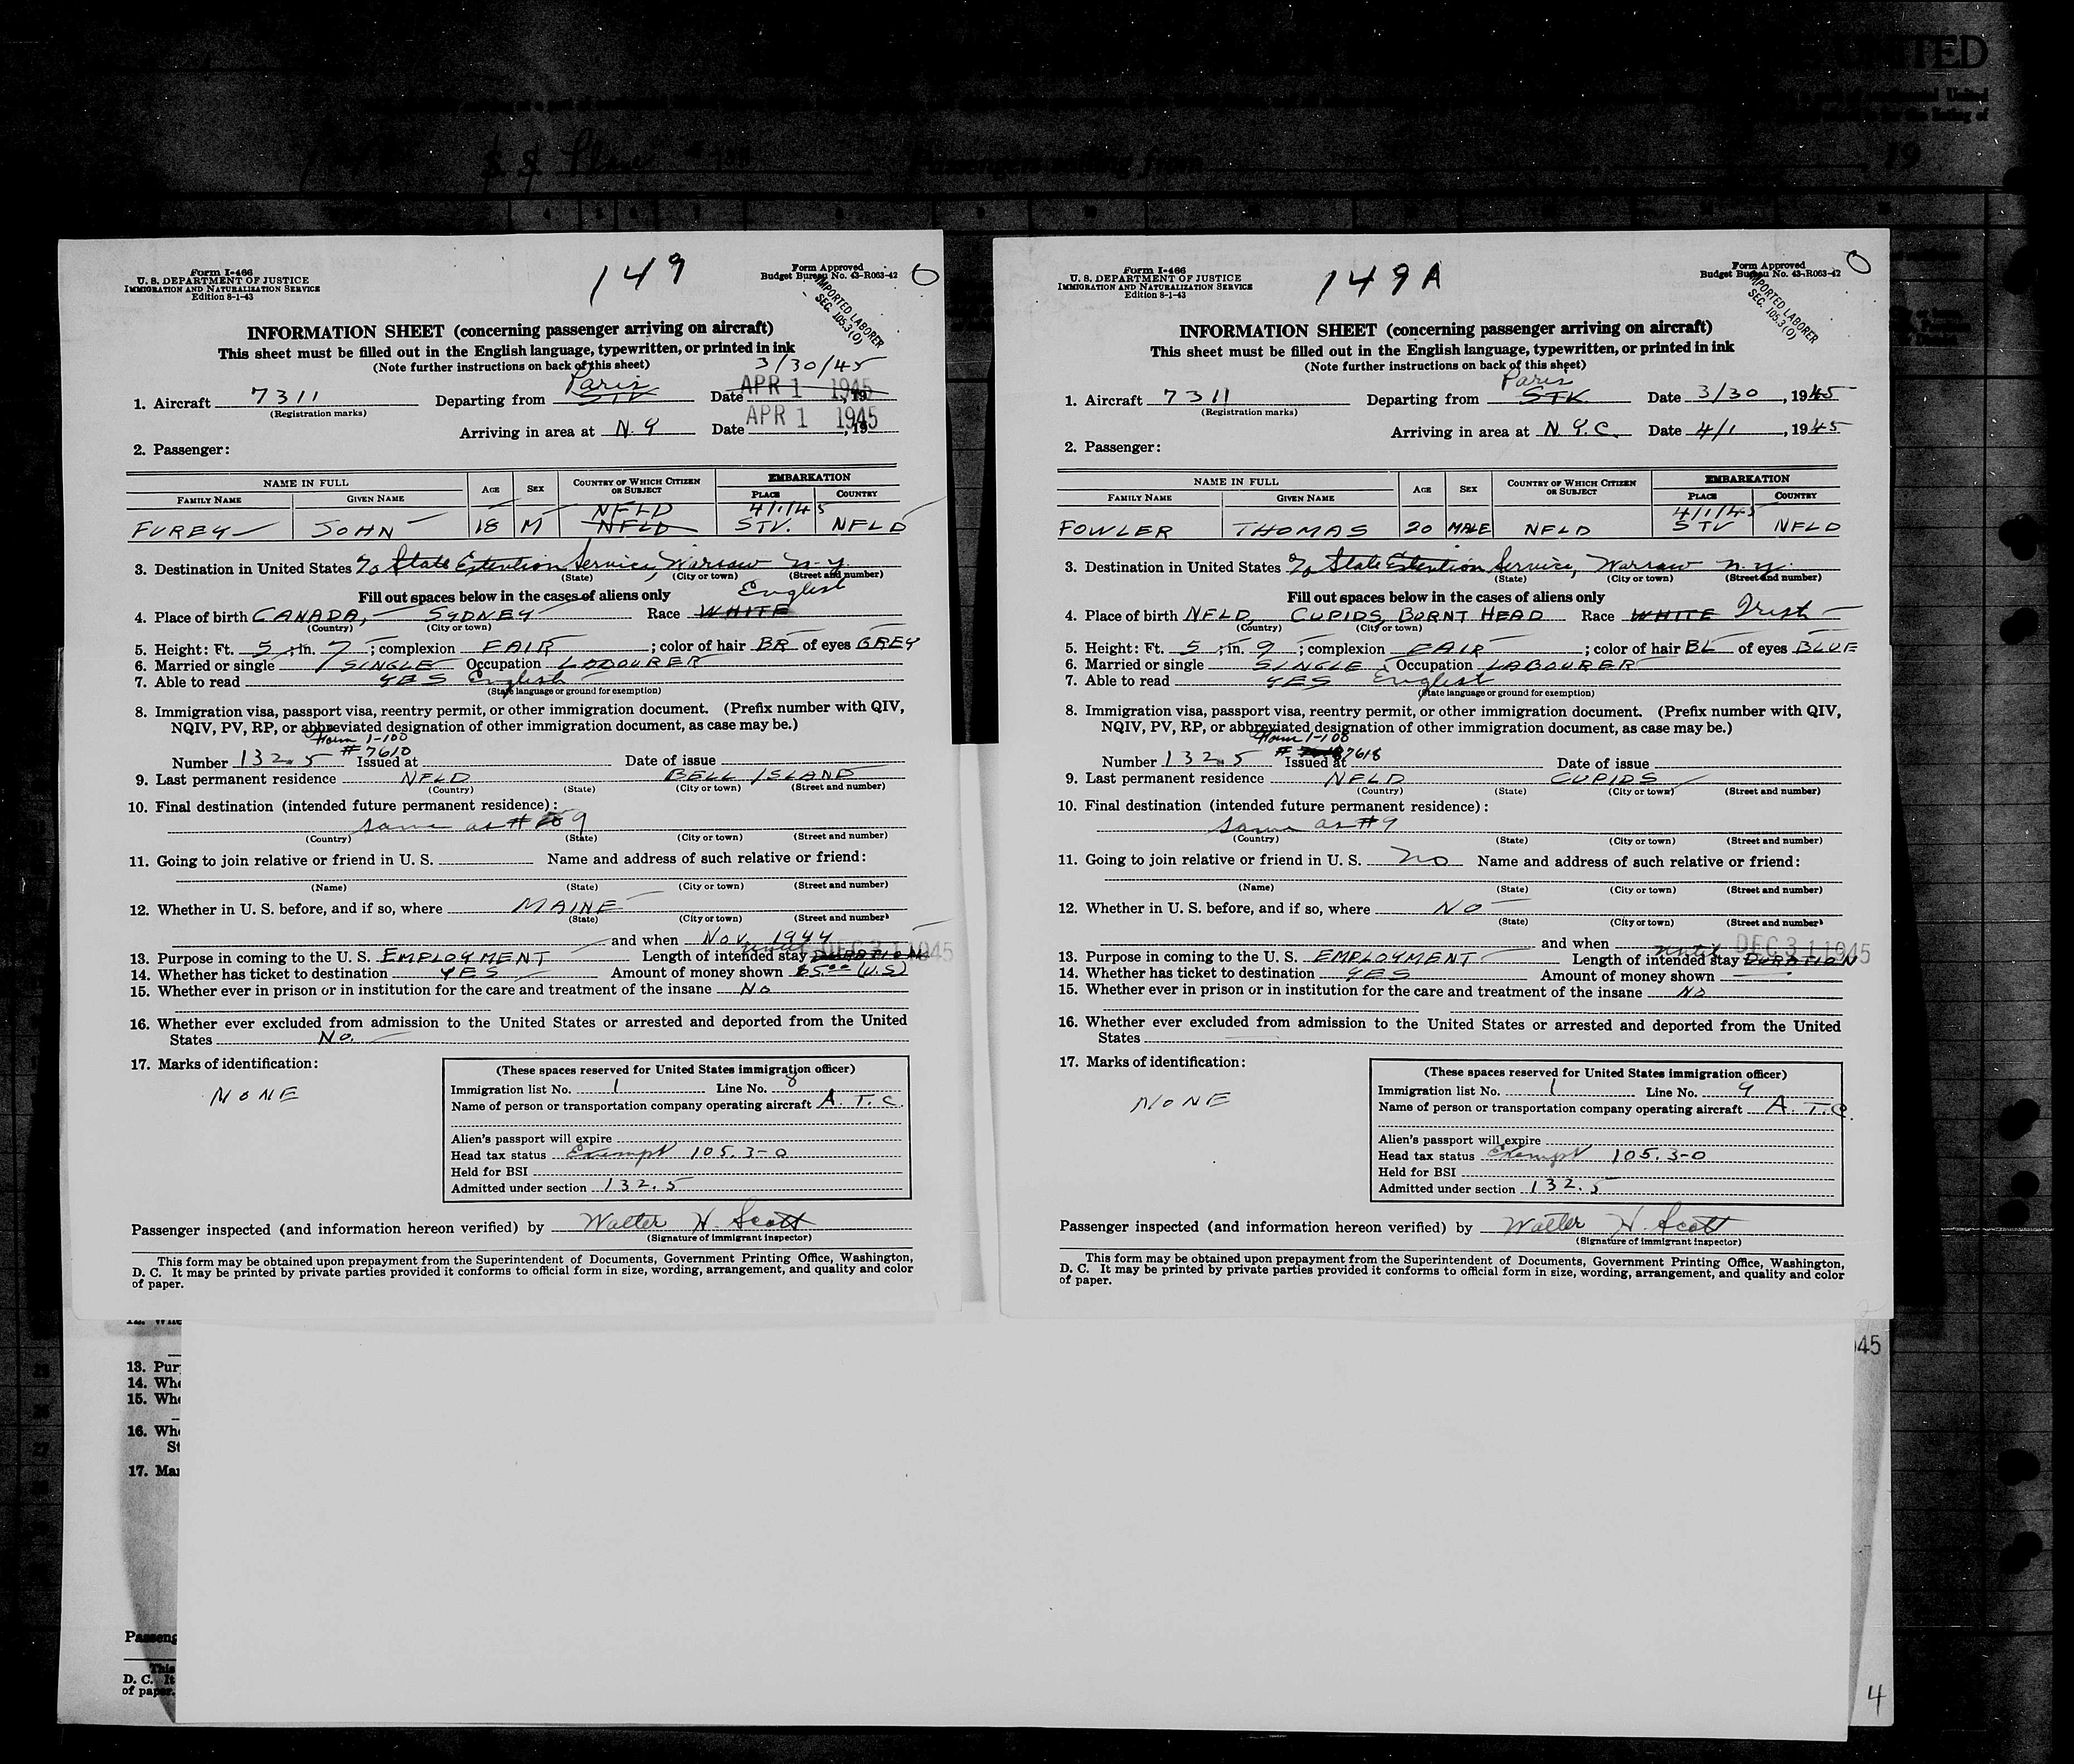 UNITED
19
Form I-466
U. S. DEPARTMENT OF JUSTICE
IMMIGRATION AND NATURALIZATION SERVICE
Edition 8-1-43
149
Form Approved
Budget Bureau No. 43-R063-42
IMPORTED LABORER
SEC. 105.3(0)
INFORMATION SHEET (concerning passenger arriving on aircraft)
This sheet must be filled out in the English language, typewritten, or printed in ink
(Note further instructions on back of this sheet)
3/30/45
Paris
1. Aircraft 7311 Departing from STV Date APR 1 1945, 19
(Registration marks)
Arriving in area at N.Y Date APR 1 1945, 19
2. Passenger:
NAME IN FULL AGE SEX COUNTRY OF WHICH CITIZEN OR SUBJECT EMBARKATION
FAMILY NAME GIVEN NAME PLACE COUNTRY
NFLD 4/1/45
FUREY JOHN 18 M NFLD STV. NFLD
3. Destination in United States % State Extention Service, Warsaw N.Y.
(State) (City or town) (Street and number)
Fill out spaces below in the cases of aliens only
English
4. Place of birth CANADA, SYDNEY Race WHITE
(Country) (City or town)
5. Height: Ft. 5; in. 7; complexion FAIR; color of hair BR of eyes GREY
6. Married or single SINGLE Occupation LABOURER
7. Able to read YES English
(State language or ground for exemption)
8. Immigration visa, passport visa, reentry permit, or other immigration document. (Prefix number with QIV,
NQIV, PV, RP, or abbreviated designation of other immigration document, as case may be.)
Form 1-100
# 7610
Number 132.5 Issued at Date of issue
9. Last permanent residence NFLD BELL ISLAND
(Country) (State) (City or town) (Street and number)
10. Final destination (intended future permanent residence):
same as # 9
(Country) (State) (City or town) (Street and number)
11. Going to join relative or friend in U. S. Name and address of such relative or friend:
(Name) (State) (City or town) (Street and number)
12. Whether in U. S. before, and if so, where MAINE
(State) (City or town) (Street and number)
and when Nov. 1944
until DEC 31 1945
13. Purpose in coming to the U. S. EMPLOYMENT Length of intended stay DURATION
14. Whether has ticket to destination YES Amount of money shown $5.00 (U.S)
15. Whether ever in prison or in institution for the care and treatment of the insane No
16. Whether ever excluded from admission to the United States or arrested and deported from the United
States No.
17. Marks of identification:
NONE
(These spaces reserved for United States immigration officer)
Immigration list No. 1 Line No. 8
Name of person or transportation company operating aircraft A. T. C.
Alien's passport will expire
Head tax status Exempt 105.3-0
Held for BSI
Admitted under section 132.5
Passenger inspected (and information hereon verified) by Walter H. Scott
(Signature of immigrant inspector)
This form may be obtained upon prepayment from the Superintendent of Documents, Government Printing Office, Washington,
D. C. It may be printed by private parties provided it conforms to official form in size, wording, arrangement, and quality and color
of paper.
Form I-466
U. S. DEPARTMENT OF JUSTICE
IMMIGRATION AND NATURALIZATION SERVICE
Edition 8-1-43
149A
Form Approved
Budget Bureau No. 43-R063-42
IMPORTED LABORER
SEC. 105.3(0)
INFORMATION SHEET (concerning passenger arriving on aircraft)
This sheet must be filled out in the English language, typewritten, or printed in ink
(Note further instructions on back of this sheet)
Paris
1. Aircraft 7311 Departing from STK Date 3/30, 1945
(Registration marks)
Arriving in area at N.Y.C. Date 4/1, 1945
2. Passenger:
NAME IN FULL AGE SEX COUNTRY OF WHICH CITIZEN OR SUBJECT EMBARKATION
FAMILY NAME GIVEN NAME PLACE COUNTRY
4/1/45
FOWLER THOMAS 20 MALE NFLD STV NFLD
3. Destination in United States % State Extention Service, Warsaw N.Y.
(State) (City or town) (Street and number)
Fill out spaces below in the cases of aliens only
4. Place of birth NFLD, CUPIDS, BURNT HEAD Race WHITE Irish
(Country) (City or town)
5. Height: Ft. 5; in. 9; complexion FAIR; color of hair BL of eyes BLUE
6. Married or single SINGLE Occupation LABOURER
7. Able to read YES English
(State language or ground for exemption)
8. Immigration visa, passport visa, reentry permit, or other immigration document. (Prefix number with QIV,
NQIV, PV, RP, or abbreviated designation of other immigration document, as case may be.)
Form 1-100
# 7618
Number 132.5 Issued at Date of issue
9. Last permanent residence NFLD CUPIDS
(Country) (State) (City or town) (Street and number)
10. Final destination (intended future permanent residence):
same as #9
(Country) (State) (City or town) (Street and number)
11. Going to join relative or friend in U. S. No Name and address of such relative or friend:
(Name) (State) (City or town) (Street and number)
12. Whether in U. S. before, and if so, where NO
(State) (City or town) (Street and number)
and when
until DEC 31 1945
13. Purpose in coming to the U. S. EMPLOYMENT Length of intended stay DURATION
14. Whether has ticket to destination YES Amount of money shown
15. Whether ever in prison or in institution for the care and treatment of the insane NO
16. Whether ever excluded from admission to the United States or arrested and deported from the United
States
17. Marks of identification:
NONE
(These spaces reserved for United States immigration officer)
Immigration list No. 1 Line No. 9
Name of person or transportation company operating aircraft A. T. C.
Alien's passport will expire
Head tax status Exempt 105.3-0
Held for BSI
Admitted under section 132.5
Passenger inspected (and information hereon verified) by Walter H. Scott
(Signature of immigrant inspector)
This form may be obtained upon prepayment from the Superintendent of Documents, Government Printing Office, Washington,
D. C. It may be printed by private parties provided it conforms to official form in size, wording, arrangement, and quality and color
of paper.
45
13. Pur
14. Wh
15. Wh
16. Wh
St
17. Ma
Passeng
This
D. C. It
of paper.
4